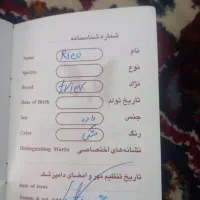 شماره شناسنامه
Name Rico نام
Species نوع
Breed نژاد
Date of Birth تاریخ تولد
Sex جنس
Color مشکی رنگ
Distinguishing Marks نشانه‌های اختصاصی
تاریخ تنظیم مهر و امضای دامپزشک
Date of Issue